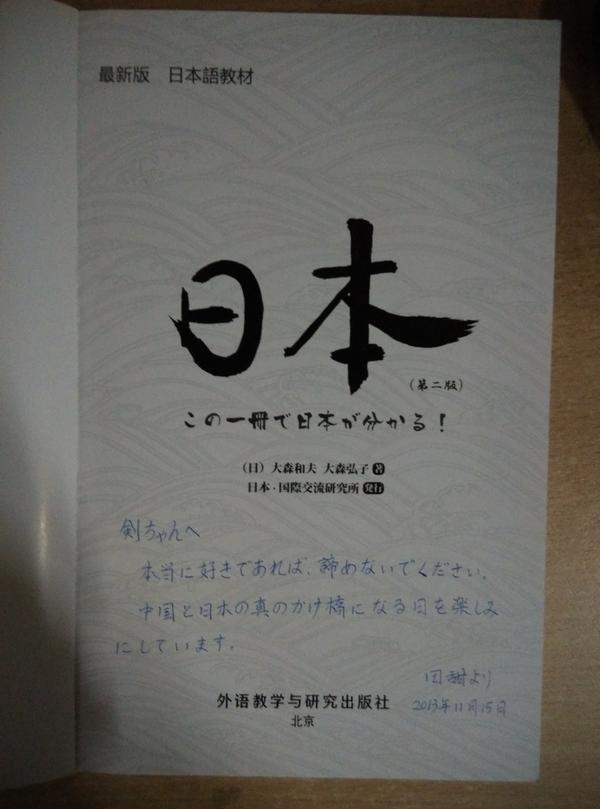 最新版　日本語教材
日本
（第二版）
この一冊で日本が分かる！
（日）大森和夫　大森弘子 著
日本・国際交流研究所 発行
剣ちゃんへ
本当に好きであれば、諦めないでください。
中国と日本の真のかけ橋になる日を楽しみ
にしています。
田甜より
2013年11月15日
外语教学与研究出版社
北京